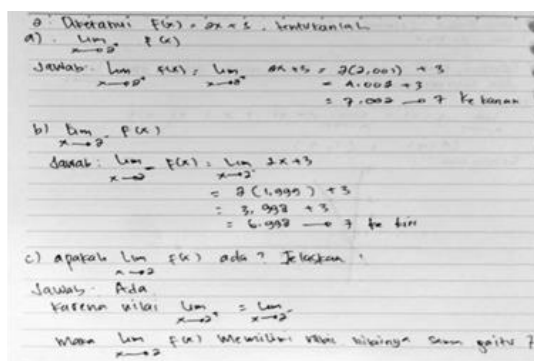 2. Diketahui f(x) = 2x + 3, tentukanlah
a). lim x→2⁺ f(x)
Jawab: lim x→2⁺ f(x) = lim x→2⁺ 2x + 3 = 2(2,001) + 3
= 4.002 + 3
= 7.002 → 7 ke kanan
b) lim x→2⁻ f(x)
Jawab: lim x→2⁻ f(x) = lim x→2⁻ 2x + 3
= 2(1,999) + 3
= 3,998 + 3
= 6.998 → 7 ke kiri
c) apakah lim x→2 f(x) ada? Jelaskan!
Jawab: Ada
Karena nilai lim x→2⁺ = lim x→2⁻
Maka lim x→2 f(x) memiliki nilainya sama yaitu 7